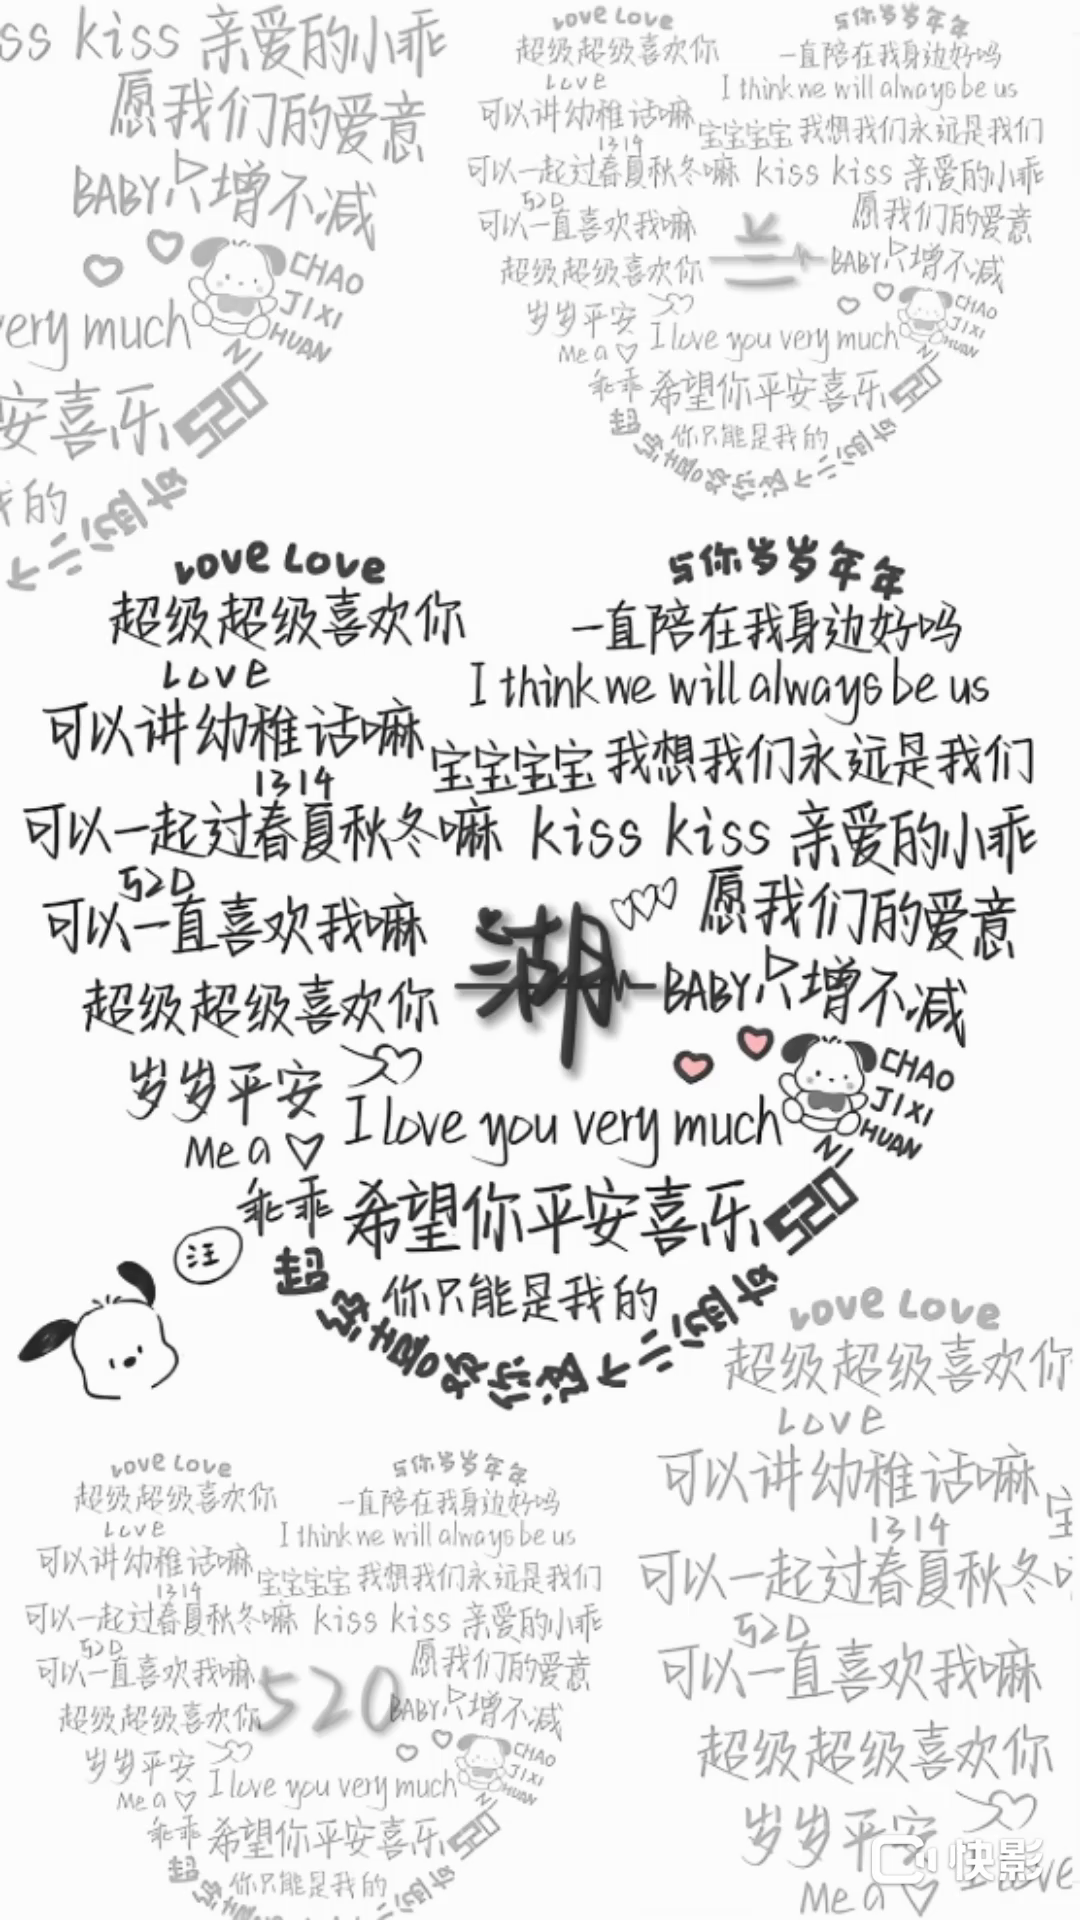 ss kiss 亲爱的小乖
愿我们的爱意
BABY只增不减
CHAO
JIXI
HUAN
NI
very much
安喜乐 520
我的
这个二的时
Love Love
与你岁岁年年
超级超级喜欢你
一直陪在我身边好吗
Love
I think we will always be us
可以讲幼稚话嘛
宝宝宝宝 我想我们永远是我们
1314
可以一起过春夏秋冬嘛 kiss kiss 亲爱的小乖
520
可以一直喜欢我嘛
愿我们的爱意
兰
超级超级喜欢你
BABY只增不减
岁岁平安
CHAO
JIXI
HUAN
NI
Me a
I love you very much
乖乖 希望你平安喜乐 520
你只能是我的
Love Love
与你岁岁年年
超级超级喜欢你
一直陪在我身边好吗
Love
I think we will always be us
可以讲幼稚话嘛
宝宝宝宝 我想我们永远是我们
1314
可以一起过春夏秋冬嘛 kiss kiss 亲爱的小乖
520
可以一直喜欢我嘛
湖
愿我们的爱意
超级超级喜欢你
BABY只增不减
岁岁平安
CHAO
JIXI
HUAN
NI
Me a
I love you very much
乖乖 希望你平安喜乐 520
汪
你只能是我的
超级喜欢你这个
Love Love
超级超级喜欢你
Love
可以讲幼稚话嘛
宝
1314
可以一起过春夏秋冬
520
可以一直喜欢我嘛
超级超级喜欢你
岁岁平安
Me a
I love
Love Love
与你岁岁年年
超级超级喜欢你
一直陪在我身边好吗
Love
I think we will always be us
可以讲幼稚话嘛
宝宝宝宝 我想我们永远是我们
1314
可以一起过春夏秋冬嘛 kiss kiss 亲爱的小乖
520
可以一直喜欢我嘛
520
愿我们的爱意
超级超级喜欢你
BABY只增不减
岁岁平安
CHAO
JIXI
HUAN
NI
Me a
I love you very much
乖乖 希望你平安喜乐 520
你只能是我的
快影